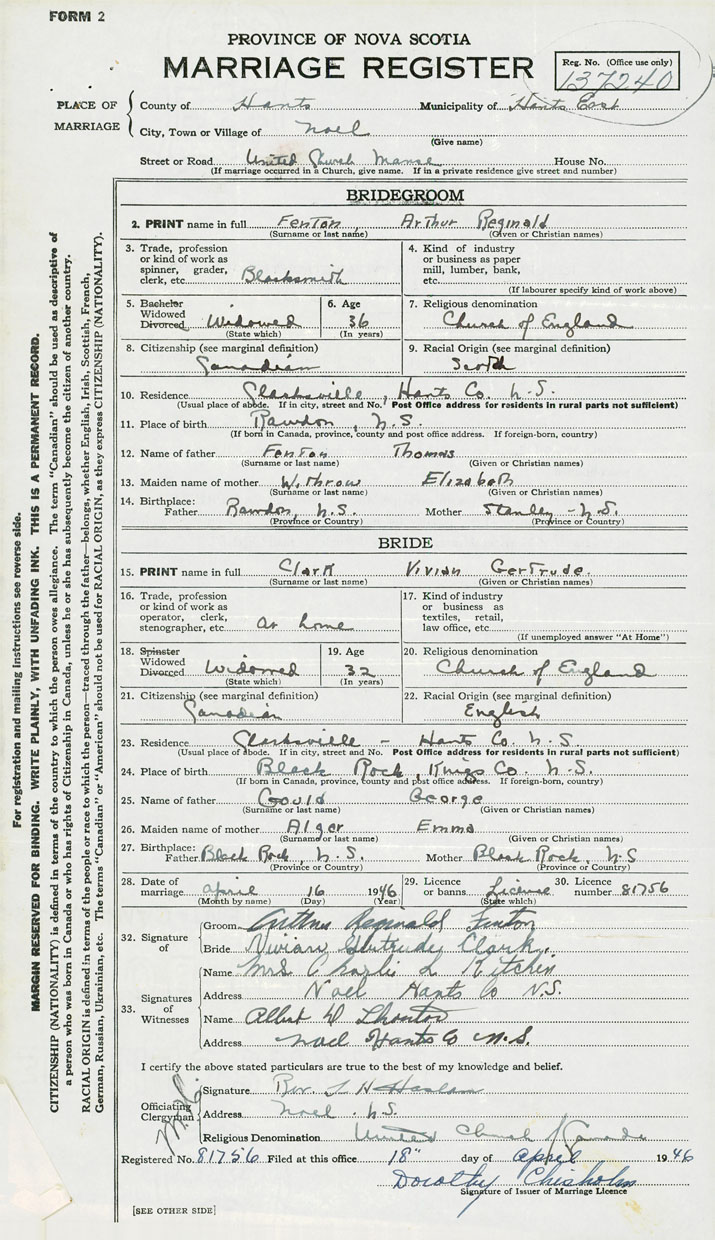 FORM 2
PROVINCE OF NOVA SCOTIA
MARRIAGE REGISTER
Reg. No. (Office use only)
137240
PLACE OF MARRIAGE
County of Hants Municipality of Hants East
City, Town or Village of Noel
(Give name)
Street or Road United Church Manse House No.
(If marriage occurred in a Church, give name. If in a private residence give street and number)
BRIDEGROOM
2. PRINT name in full Fenton Arthur Reginald
(Surname or last name) (Given or Christian names)
3. Trade, profession or kind of work as spinner, grader, clerk, etc. Blacksmith
4. Kind of industry or business as paper mill, lumber, bank, etc.
(If labourer specify kind of work above)
5. Bachelor Widowed Divorced Widowed
(State which)
6. Age 36
(In years)
7. Religious denomination
Church of England
8. Citizenship (see marginal definition)
Canadian
9. Racial Origin (see marginal definition)
Scotch
10. Residence Clarksville, Hants Co. N.S.
(Usual place of abode. If in city, street and No. Post Office address for residents in rural parts not sufficient)
11. Place of birth Rawdon, N.S.
(If born in Canada, province, county and post office address. If foreign-born, country)
12. Name of father Fenton Thomas
(Surname or last name) (Given or Christian names)
13. Maiden name of mother Withrow Elizabeth
(Surname or last name) (Given or Christian names)
14. Birthplace: Father Rawdon, N.S. Mother Stanley - N.S.
(Province or Country) (Province or Country)
BRIDE
15. PRINT name in full Clark Vivian Gertrude.
(Surname or last name) (Given or Christian names)
16. Trade, profession or kind of work as operator, clerk, stenographer, etc. At home
17. Kind of industry or business as textiles, retail, law office, etc.
(If unemployed answer "At Home")
18. Spinster Widowed Divorced Widowed
(State which)
19. Age 32
(In years)
20. Religious denomination
Church of England
21. Citizenship (see marginal definition)
Canadian
22. Racial Origin (see marginal definition)
English
23. Residence Clarksville - Hants Co. N.S.
(Usual place of abode. If in city, street and No. Post Office address for residents in rural parts not sufficient)
24. Place of birth Black Rock, Kings Co. N.S.
(If born in Canada, province, county and post office address. If foreign-born, country)
25. Name of father Gould George
(Surname or last name) (Given or Christian names)
26. Maiden name of mother Alger Emma
(Surname or last name) (Given or Christian names)
27. Birthplace: Father Black Rock, N.S. Mother Black Rock, N.S
(Province or Country) (Province or Country)
28. Date of marriage April 16 1946
(Month by name) (Day) (Year)
29. Licence or banns License
(State which)
30. Licence number 81756
32. Signature of
Groom Arthur Reginald Fenton
Bride Vivian Gertrude Clark.
33. Signatures of Witnesses
Name Mrs Charlie L Kitchen
Address Noel Hants Co N.S.
Name Albert
Address Noel Hants Co N.S.
I certify the above stated particulars are true to the best of my knowledge and belief.
Officiating Clergyman
Signature Rev.
Address Noel. N.S.
Religious Denomination United Church of Canada
Registered No. 81756 Filed at this office 18" day of April 1946
Dorothy Chisholm
Signature of Issuer of Marriage Licence
[SEE OTHER SIDE]
For registration and mailing instructions see reverse side.
MARGIN RESERVED FOR BINDING. WRITE PLAINLY, WITH UNFADING INK. THIS IS A PERMANENT RECORD.
CITIZENSHIP (NATIONALITY) is defined in terms of the country to which the person owes allegiance. The term "Canadian" should be used as descriptive of
a person who was born in Canada or who has rights of Citizenship in Canada, unless he or she has subsequently become the citizen of another country.
RACIAL ORIGIN is defined in terms of the people or race to which the person—traced through the father—belongs, whether English, Irish, Scottish, French,
German, Russian, Ukrainian, etc. The terms "Canadian" or "American" should not be used for RACIAL ORIGIN, as they express CITIZENSHIP (NATIONALITY).